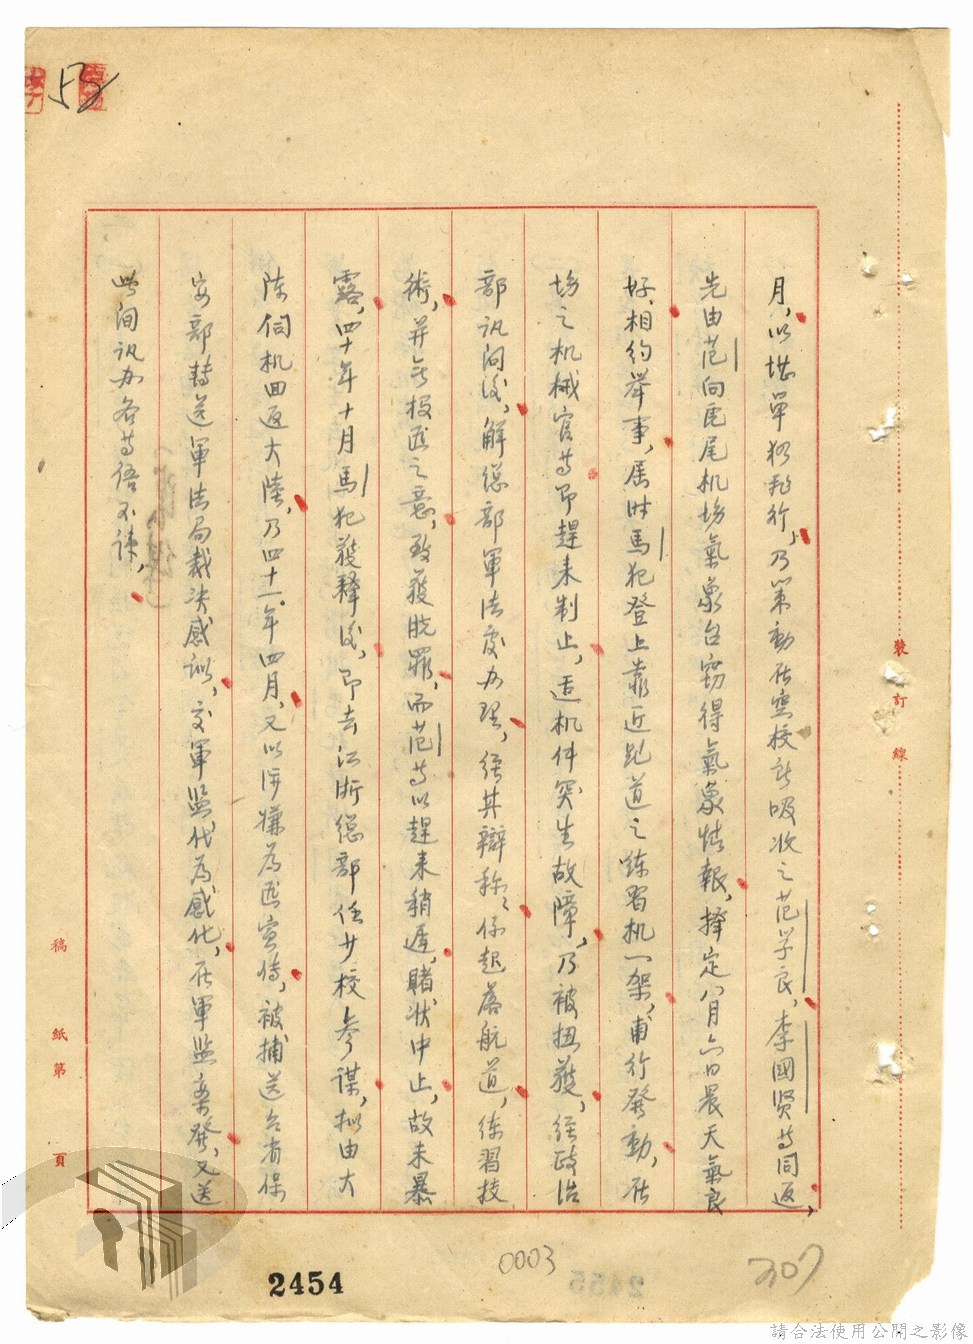 月，以堪單獨飛行，乃策動在空校所吸收之范学良，李國賢等同返，
先由范向虎尾机場氣象台竊得氣象情報，擇定八月六日晨天氣良
好，相約举事，屆时馬犯登上靠近跑道之练習机一架，甫行發動，在
場之机械官等即趕来制止，适机件突生故障，乃被扭獲，经政治
部讯问後，解總部軍法處办理，经其辯称，係起落航道，练習技
術，并無投匪之意，致獲脱罪，而范等以趕来稍遲，睹状中止，故未暴
露，四十年十月馬犯獲釋後，即去江浙總部任少校參謀，拟由大
陈伺机回返大陸，乃四十一年四月，又以涉嫌為匪宣傳，被捕送台省保
安部轉送軍法局裁决感訓，交軍監代為感化，在軍監案發，又送
此间讯办各等语不諱，
裝
訂
線
稿
紙
第
頁
0003
307
2454
請合法使用公開之影像